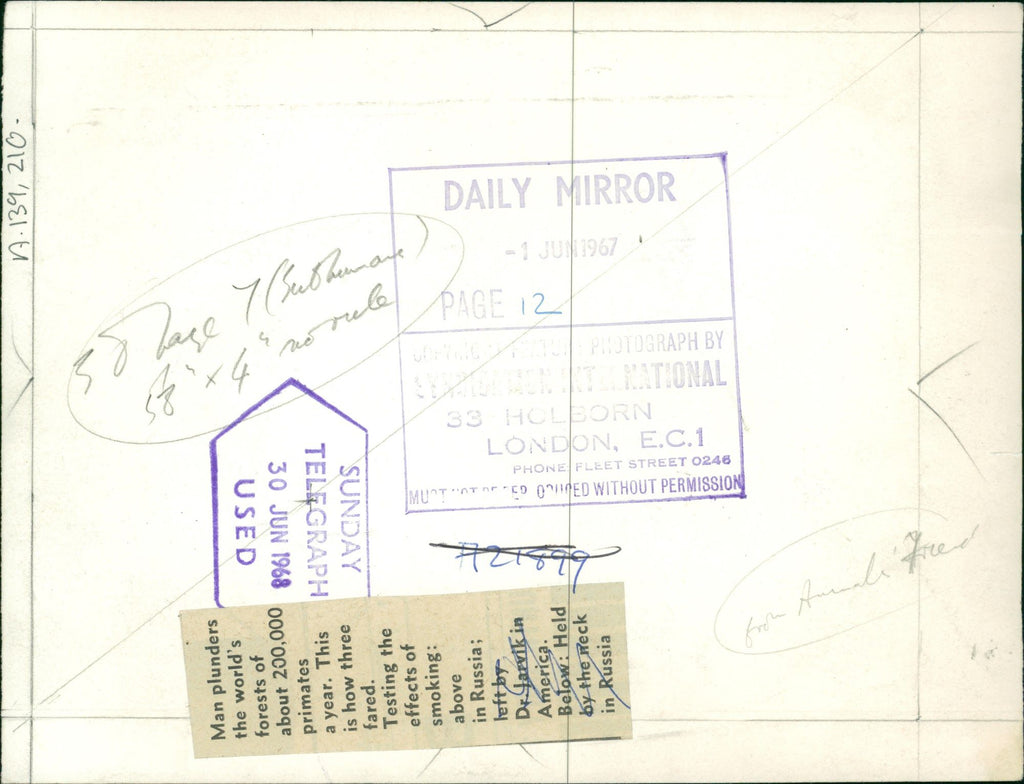 n. 139, 210.
DAILY MIRROR
-1 JUN 1967
PAGE 12
PHOTOGRAPH BY
INTERNATIONAL
33 HOLBORN
LONDON, E.C.1
PHONE FLEET STREET 0246
MUST NOT BE REPRODUCED WITHOUT PERMISSION
Page 7 (Subhumans)
5⅝" × 4" no rule
SUNDAY
TELEGRAPH
30 JUN 1968
USED
A21899
from Animals' Friend
Man plunders
the world's
forests of
about 200,000
primates
a year. This
is how three
fared.
Testing the
effects of
smoking:
above
in Russia;
left by
Dr Jarvik in
America.
Below: Held
by the neck
in Russia